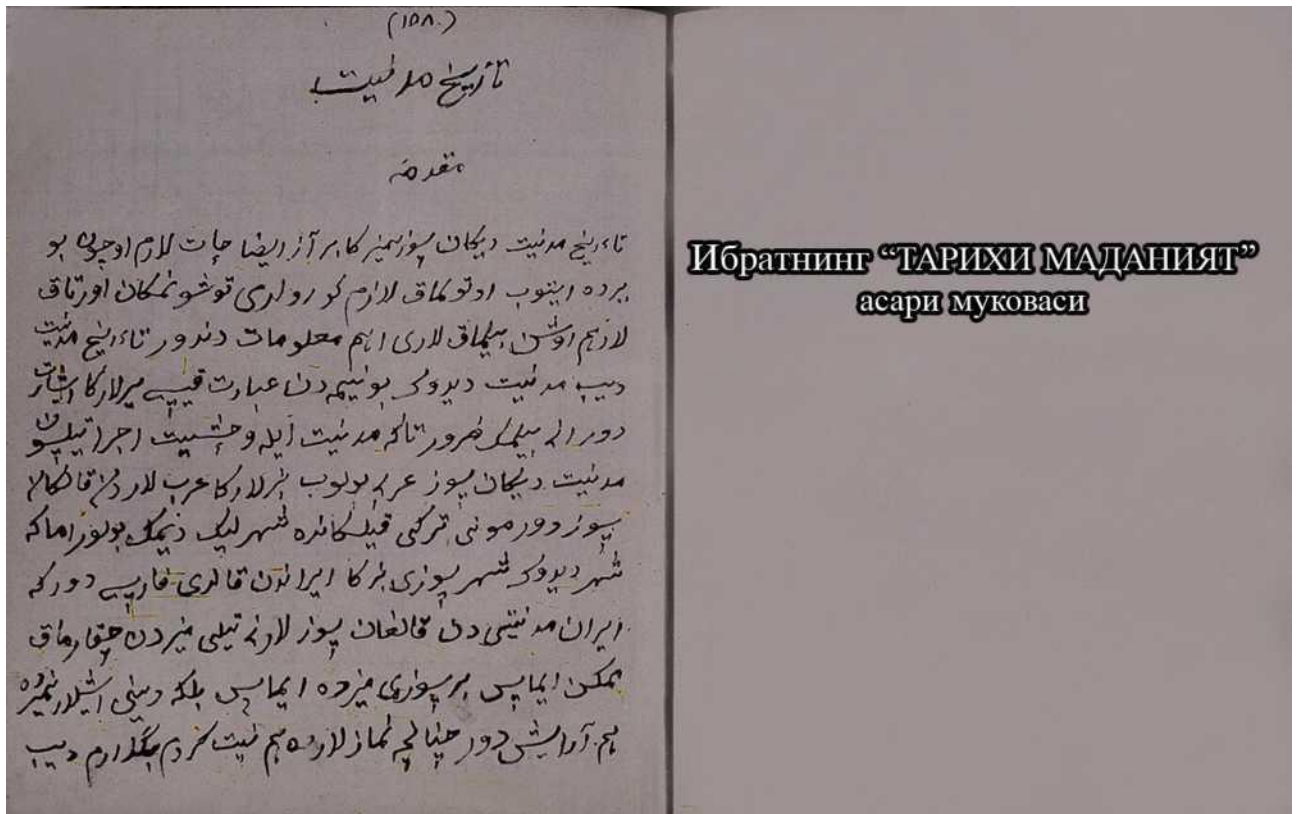 (١٥٨.)
تأريخ مدنيت
مقدمه
تاءريخ مدنيت ديكان سوزيميز كا بر آز ايضاحات لازم اوچون بو
يرده ايتوب اوتوكماق لازم كورولدى توشونمكان اورتاق
لارهم اوشن بيلماق لارى اهم معلومات دندور تاءريخ مدنيت
ديب مدنيت ديدوك بو نيمه دن عبارت قيسى يرلاركا اشارت
دور انى بيلمك ضرور تاكه مدنيت ايله وحشيت اجرا تيلسون
مدنيت ديكان سوز عربى بولوب بزلاركا عرب لار دن قالكان
سوز دور مونى تركى قيلكانده شهر ليك ديمك بولور اما كه
شهر ديدوك شهر سوزى بزكا ايراندن قالدى فارسى دور كه
ايران مدنيتى دن قالغان سوز لارنى تيلى ميزدن چقارماق
ممكن ايماس بر سوزى ميزده ايماس بلكه دينى ايشلار يميزده
هم آرايش دور چنانچه نماز لارده هم نيت كردم بگذارم ديب
Ибратнинг “ТАРИХИ МАДАНИЯТ”
асари муковаси